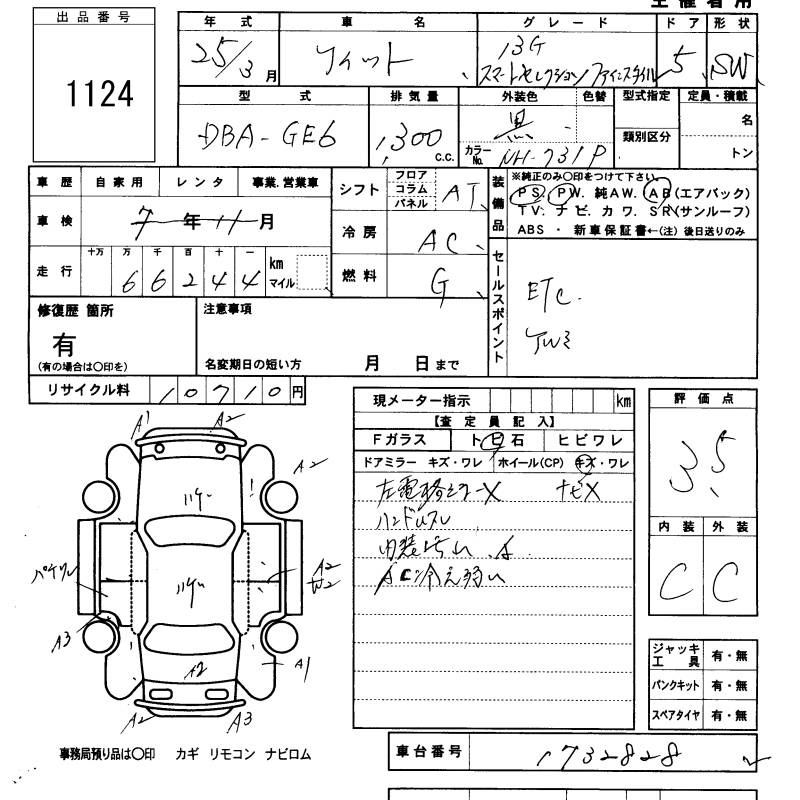 出品番号
1124
年式 車名 グレード ドア 形状
25/3月 フィット 13G スマートセレクション ファインスタイル 5 SW
型式 排気量 外装色 色替 型式指定 定員・積載
DBA-GE6 1,300 c.c. 黒 カラーNo. NH-731P 類別区分 名 トン
車歴 自家用 レンタ 事業.営業車
車検 7年11月
走行 十万 万 千 百 十 一 km マイル
66244
シフト フロア コラム パネル AT
冷房 AC
燃料 G
装備品 ※純正のみ〇印をつけて下さい。
PS. PW. 純AW. AB(エアバック)
TV. ナビ. カワ. SR(サンルーフ)
ABS ・ 新車保証書←(注) 後日送りのみ
セールスポイント
ETC.
修復歴 箇所
有
(有の場合は〇印を)
注意事項
名変期日の短い方 月 日まで
リサイクル料 10710円
現メーター指示 km
【査定員記入】
Fガラス トビ石 ヒビワレ
ドアミラー キズ・ワレ ホイール(CP) キズ・ワレ
左電格ミラーX ナビX
ハンドルスレ
内装汚れ
AC冷え弱い
評価点
3.5
内装 外装
C C
ジャッキ工具 有・無
パンクキット 有・無
スペアタイヤ 有・無
A1 A2
A2
ハゲ
ハゲ
A2
W2
A3
A2
A1
A2 A3
事務局預り品は〇印 カギ リモコン ナビロム
車台番号 1732828